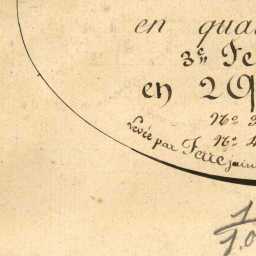 en qua
3e Fe
en 29
No 3
No 4
Levée par Ferré jain
1
1.0